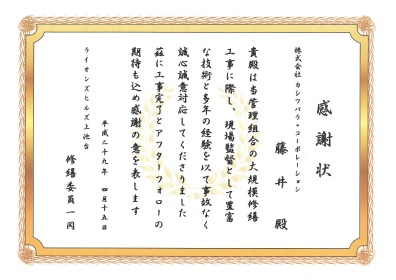 感謝状
株式会社 カシワバラ・コーポレーション
藤井 殿
貴殿は当管理組合の大規模修繕
工事に際し、現場監督として豊富
な技術と多年の経験を以て事故なく
誠心誠意対応してくださりました
茲に工事完了とアフターフォローの
期待も込め感謝の意を表します
平成二十九年 四月十五日
ライオンズヒルズ上池台
修繕委員一同